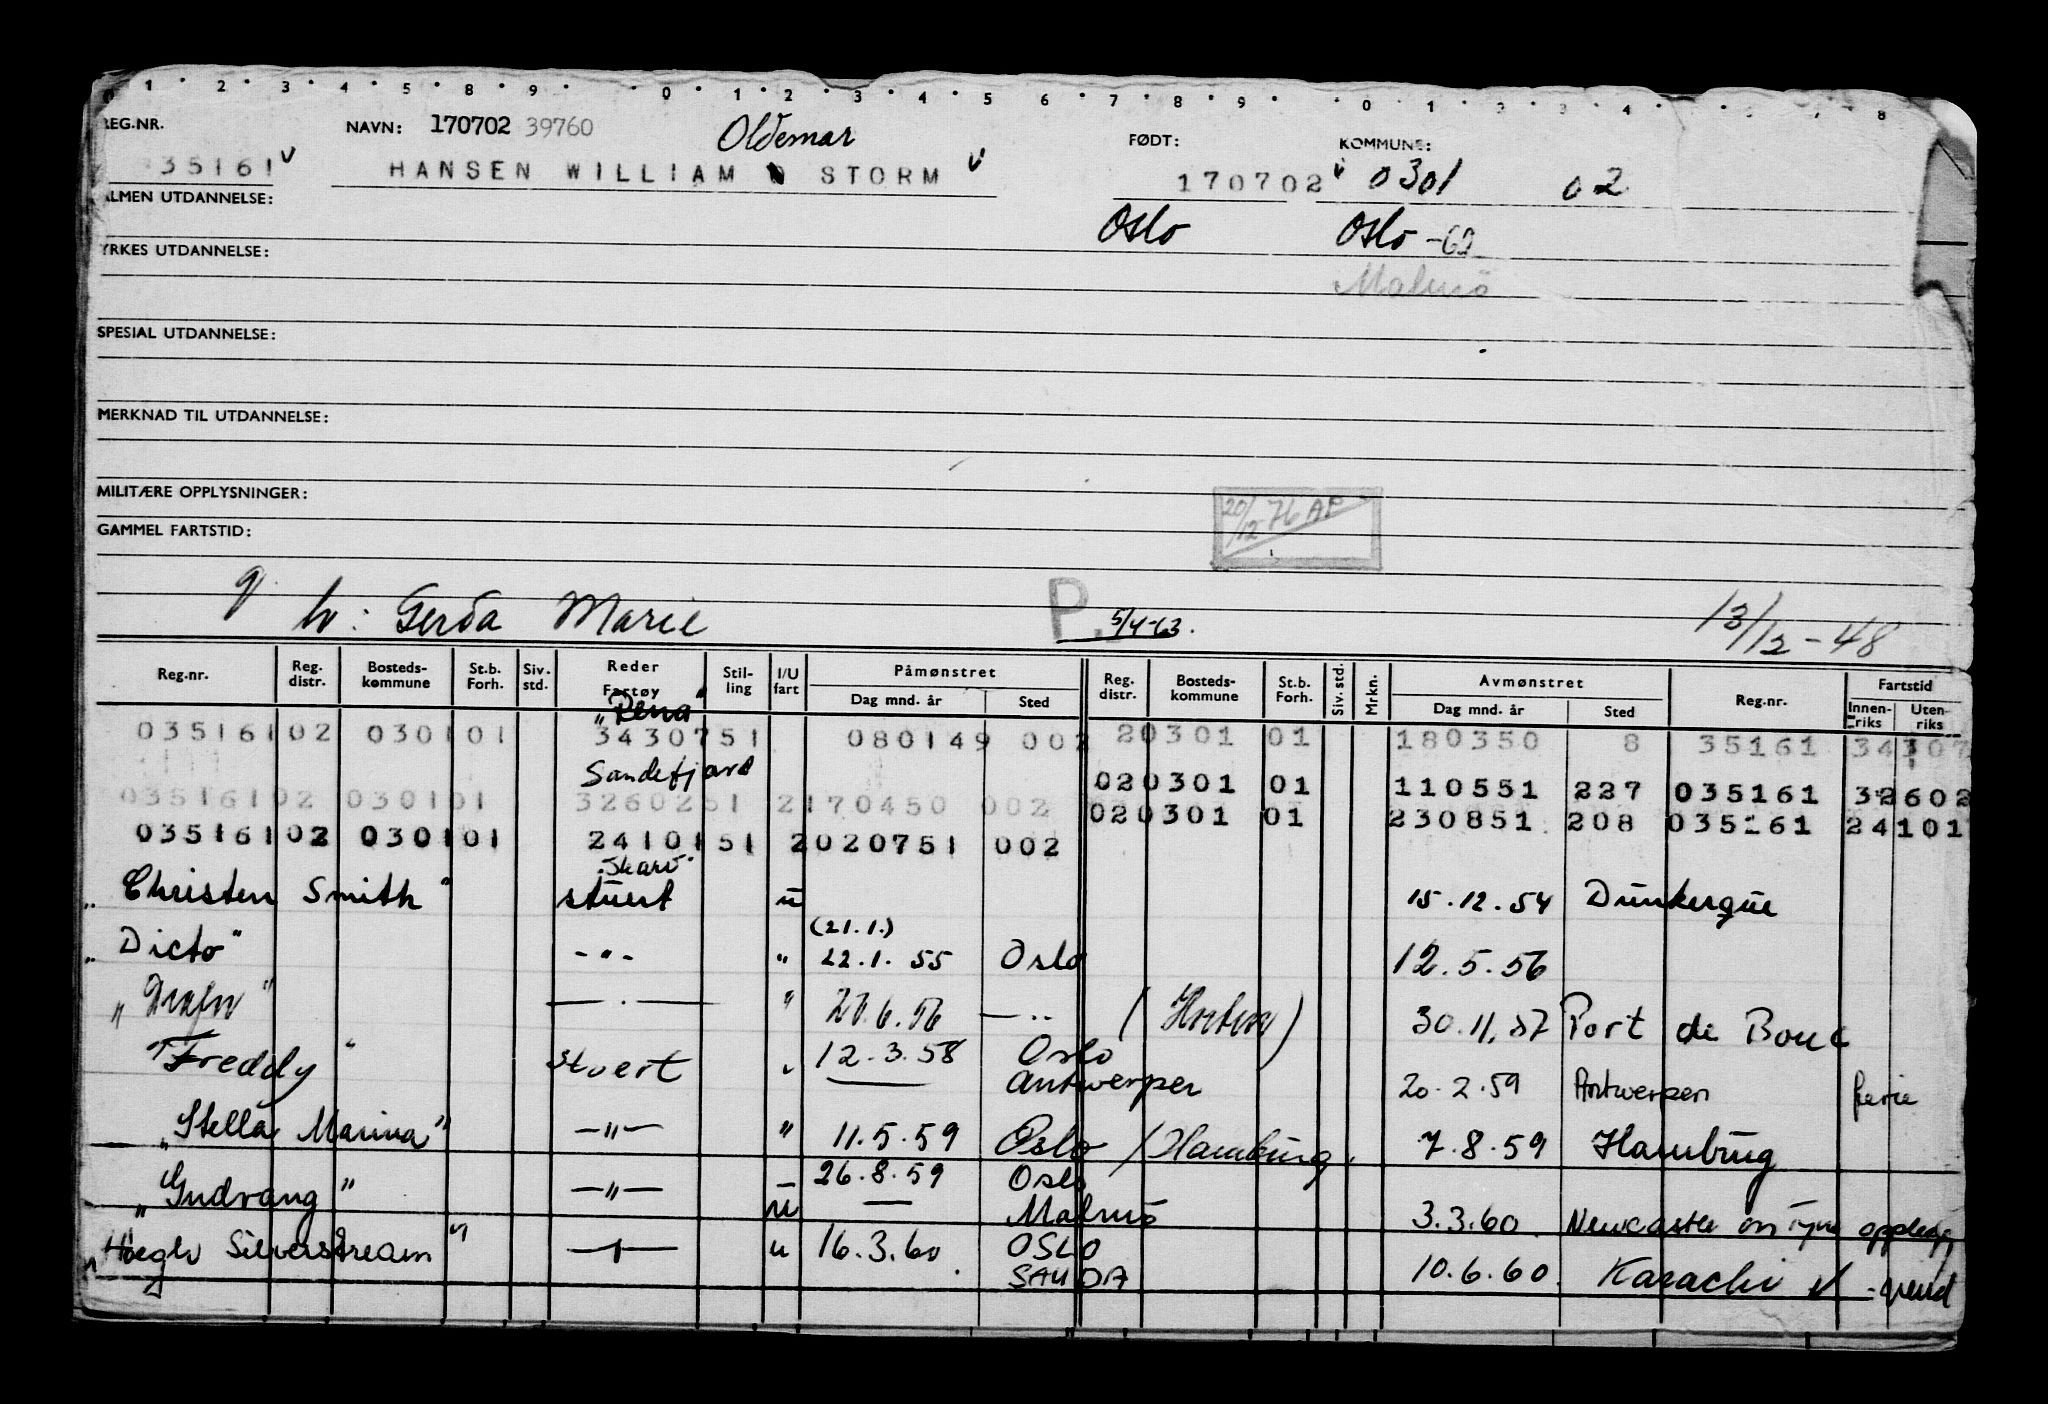 1 2 3 4 5 8 9 0 1 2 3 4 5 6 7 8 9 0 1 2 3 4 5 7 8
REG.NR. NAVN: 170702 39760 Oldemar FØDT: KOMMUNE:
35161 v HANSEN WILLIAM STORM v 170702 v 0301 02
ALMEN UTDANNELSE:
Oslo Oslo -62
YRKES UTDANNELSE:
Malmö
SPESIAL UTDANNELSE:
MERKNAD TIL UTDANNELSE:
MILITÆRE OPPLYSNINGER:
20/12 76 AF
GAMMEL FARTSTID:
g. h: Gerda Marie P. 5/4-63. 13/12-48
Reg.nr. Reg. distr. Bosteds- kommune St.b. Forh. Siv. std. Reder Fartøy Stil- ling I/U fart Påmønstret Dag mnd. år Sted Reg. distr. Bosteds- kommune St.b. Forh. Siv. std. Mrkn. Avmønstret Dag mnd. år Sted Reg.nr. Fartstid Innen- riks Uten- riks
"Rena"
03516102 030101 3430751 080149 002 20301 01 180350 8 35161 34307
Sandefjord
020301 01 110551 227 035161 32602
03516102 030101 3260251 2170450 002
020301 01 230851 208 035161 24101
03516102 030101 2410151 2020751 002
"Skarv"
"Christen Smith" stuert u 15.12.54 Dunkerque
(21.1.)
"Dicto" - " - " 22.1.55 Oslo 12.5.56
— . — " 6.56 — .. (Horten) 30.11.57 Port de Bouc
"Freddy" Stuert " 12.3.58 Oslo
Antwerpen 20.2.59 Antwerpen ferie
"Stella Marina" — " — " 11.5.59 Oslo / Hamburg. 7.8.59 Hamburg
"Gudvang" — " — 26.8.59 Oslo
u — Malmö 3.3.60 Newcastle on Tyne opplegg
"Høegh Silverstream" — " — u 16.3.60 OSLO
SAUDA 10.6.60. Karachi